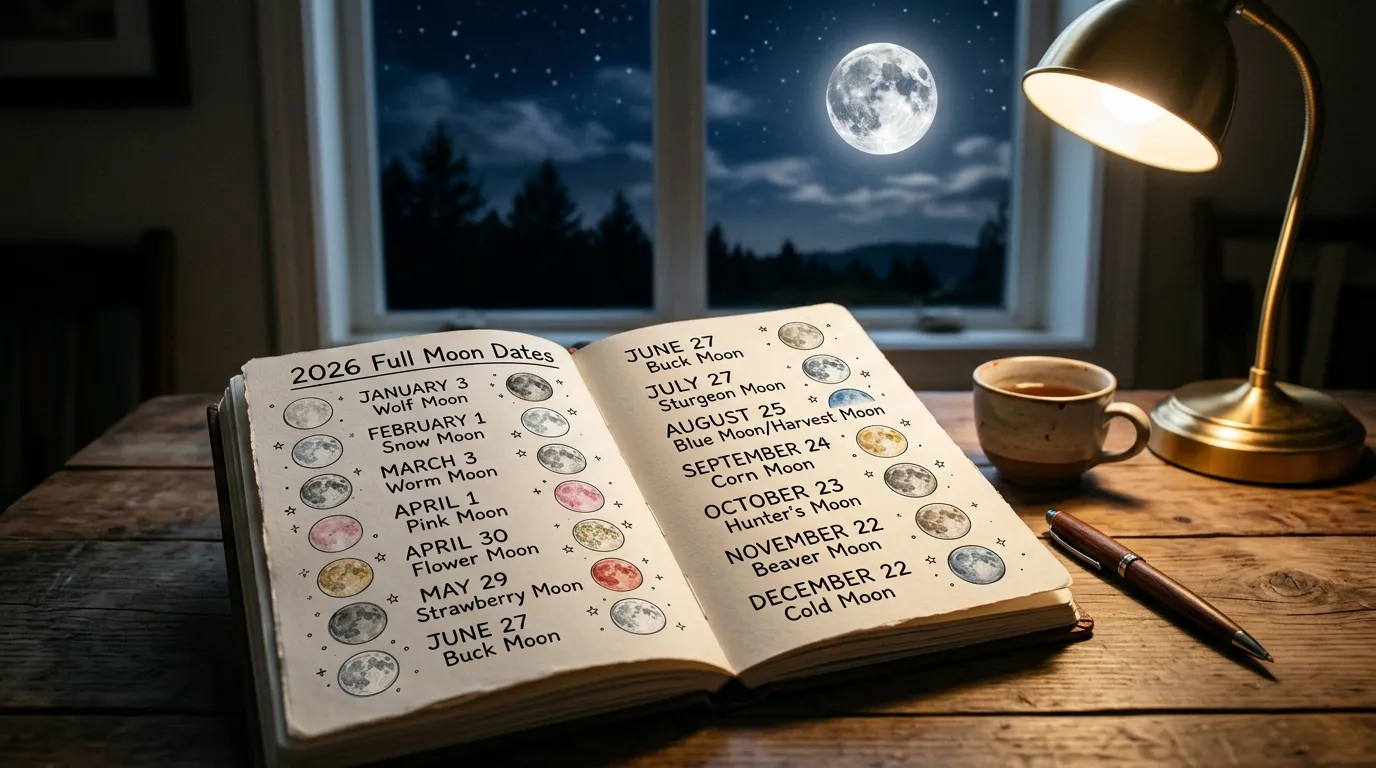 2026 Full Moon Dates
JANUARY 3
Wolf Moon
FEBRUARY 1
Snow Moon
MARCH 3
Worm Moon
APRIL 1
Pink Moon
APRIL 30
Flower Moon
MAY 29
Strawberry Moon
JUNE 27
Buck Moon
JUNE 27
Buck Moon
JULY 27
Sturgeon Moon
AUGUST 25
Blue Moon/Harvest Moon
SEPTEMBER 24
Corn Moon
OCTOBER 23
Hunter's Moon
NOVEMBER 22
Beaver Moon
DECEMBER 22
Cold Moon